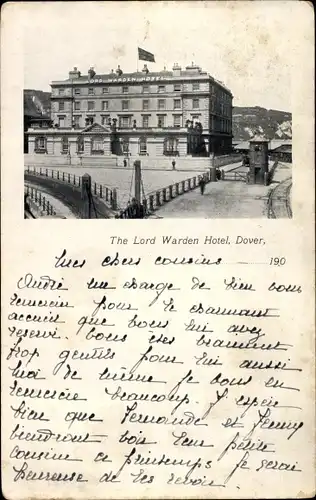 LORD WARDEN HOTEL
The Lord Warden Hotel, Dover,
Mes chers cousins 190
André me charge de bien vous
remercier pour le charmant
accueil que vous lui avez
réservé. Vous êtes vraiment
trop gentils pour lui aussi
moi de même je vous en
remercie beaucoup. J'espère
bien que Fernande et Jenny
viendront voir leur petite
cousine ce printemps je serai
heureuse de les revoir.